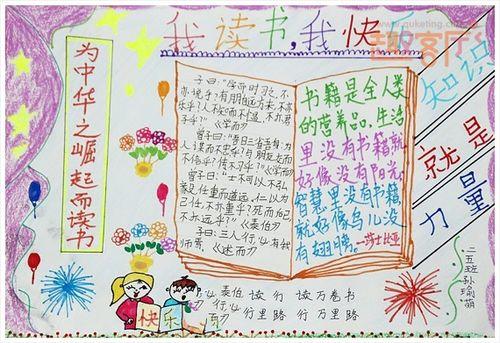 我读书,我快乐
www.quketing.com
趣客厅
为中华之崛起而读书
子曰:“学而时习之,不
亦说乎?有朋自远方来,不亦
乐乎?人不知而不愠,不亦君
子乎?”《学而》
曾子曰:“吾日三省吾身:为
人谋而不忠乎?与朋友交而
不信乎?传不习乎?”《学而》
曾子曰:“士不可以不弘
毅,任重而道远。仁以为
己任,不亦重乎?死而后已,
不亦远乎?”《泰伯》
子曰:三人行,必有我
师焉。《述而》
书籍是全人类
的营养品。生活
里没有书籍就
好像没有阳光;
智慧里没有书籍
就好像鸟儿没
有翅膀。—莎士比亚
知识
就是
力量
二五班 孙瑜萌
泰伯 读行 读万卷书
行里路 行万里路
快乐